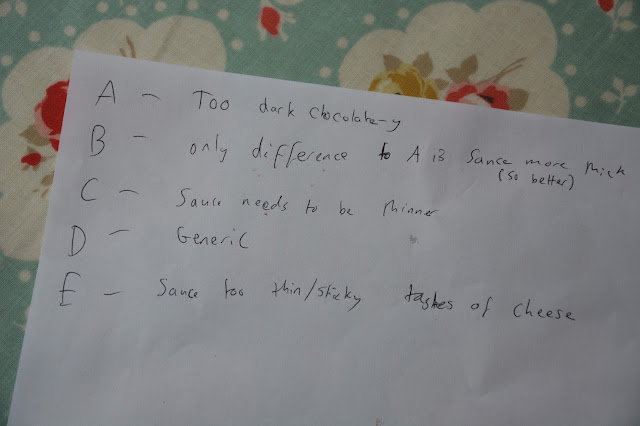 A - Too dark chocolate-y
B - only difference to A is sauce more thick
(so better)
C - Sauce needs to be thinner
D - Generic
E - Sauce too thin/sticky tastes of cheese